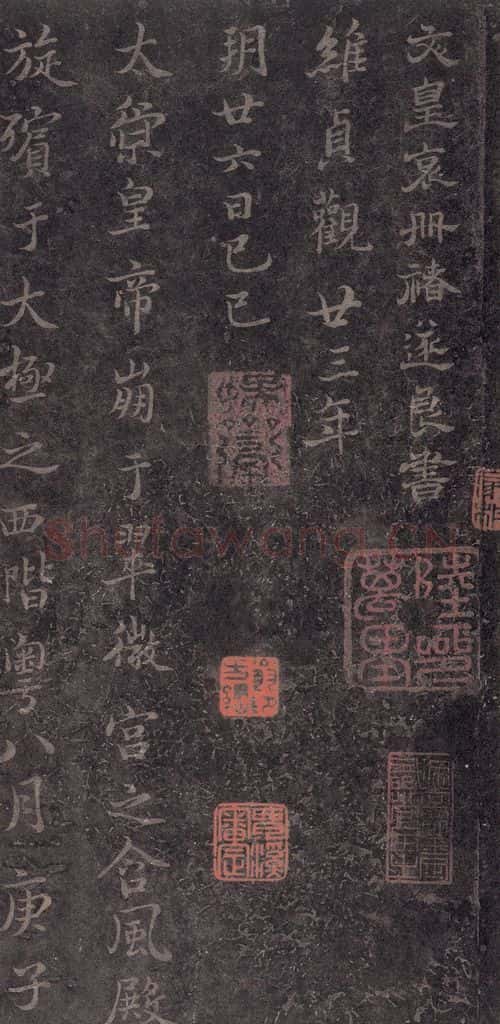 文皇哀册褚遂良書
維貞觀廿三年
朔廿六日己巳
太宗皇帝崩于翠微宮之含風殿
旋殯于大極之西階粵八月庚子
Shufawang.CN